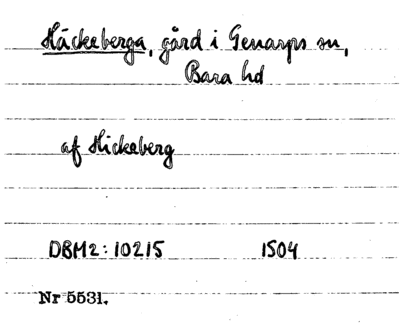 Häckeberga, gård i Genarps sn,
Bara hd
af Hickeberg
DBM2: 10215 1504
Nr 5531.